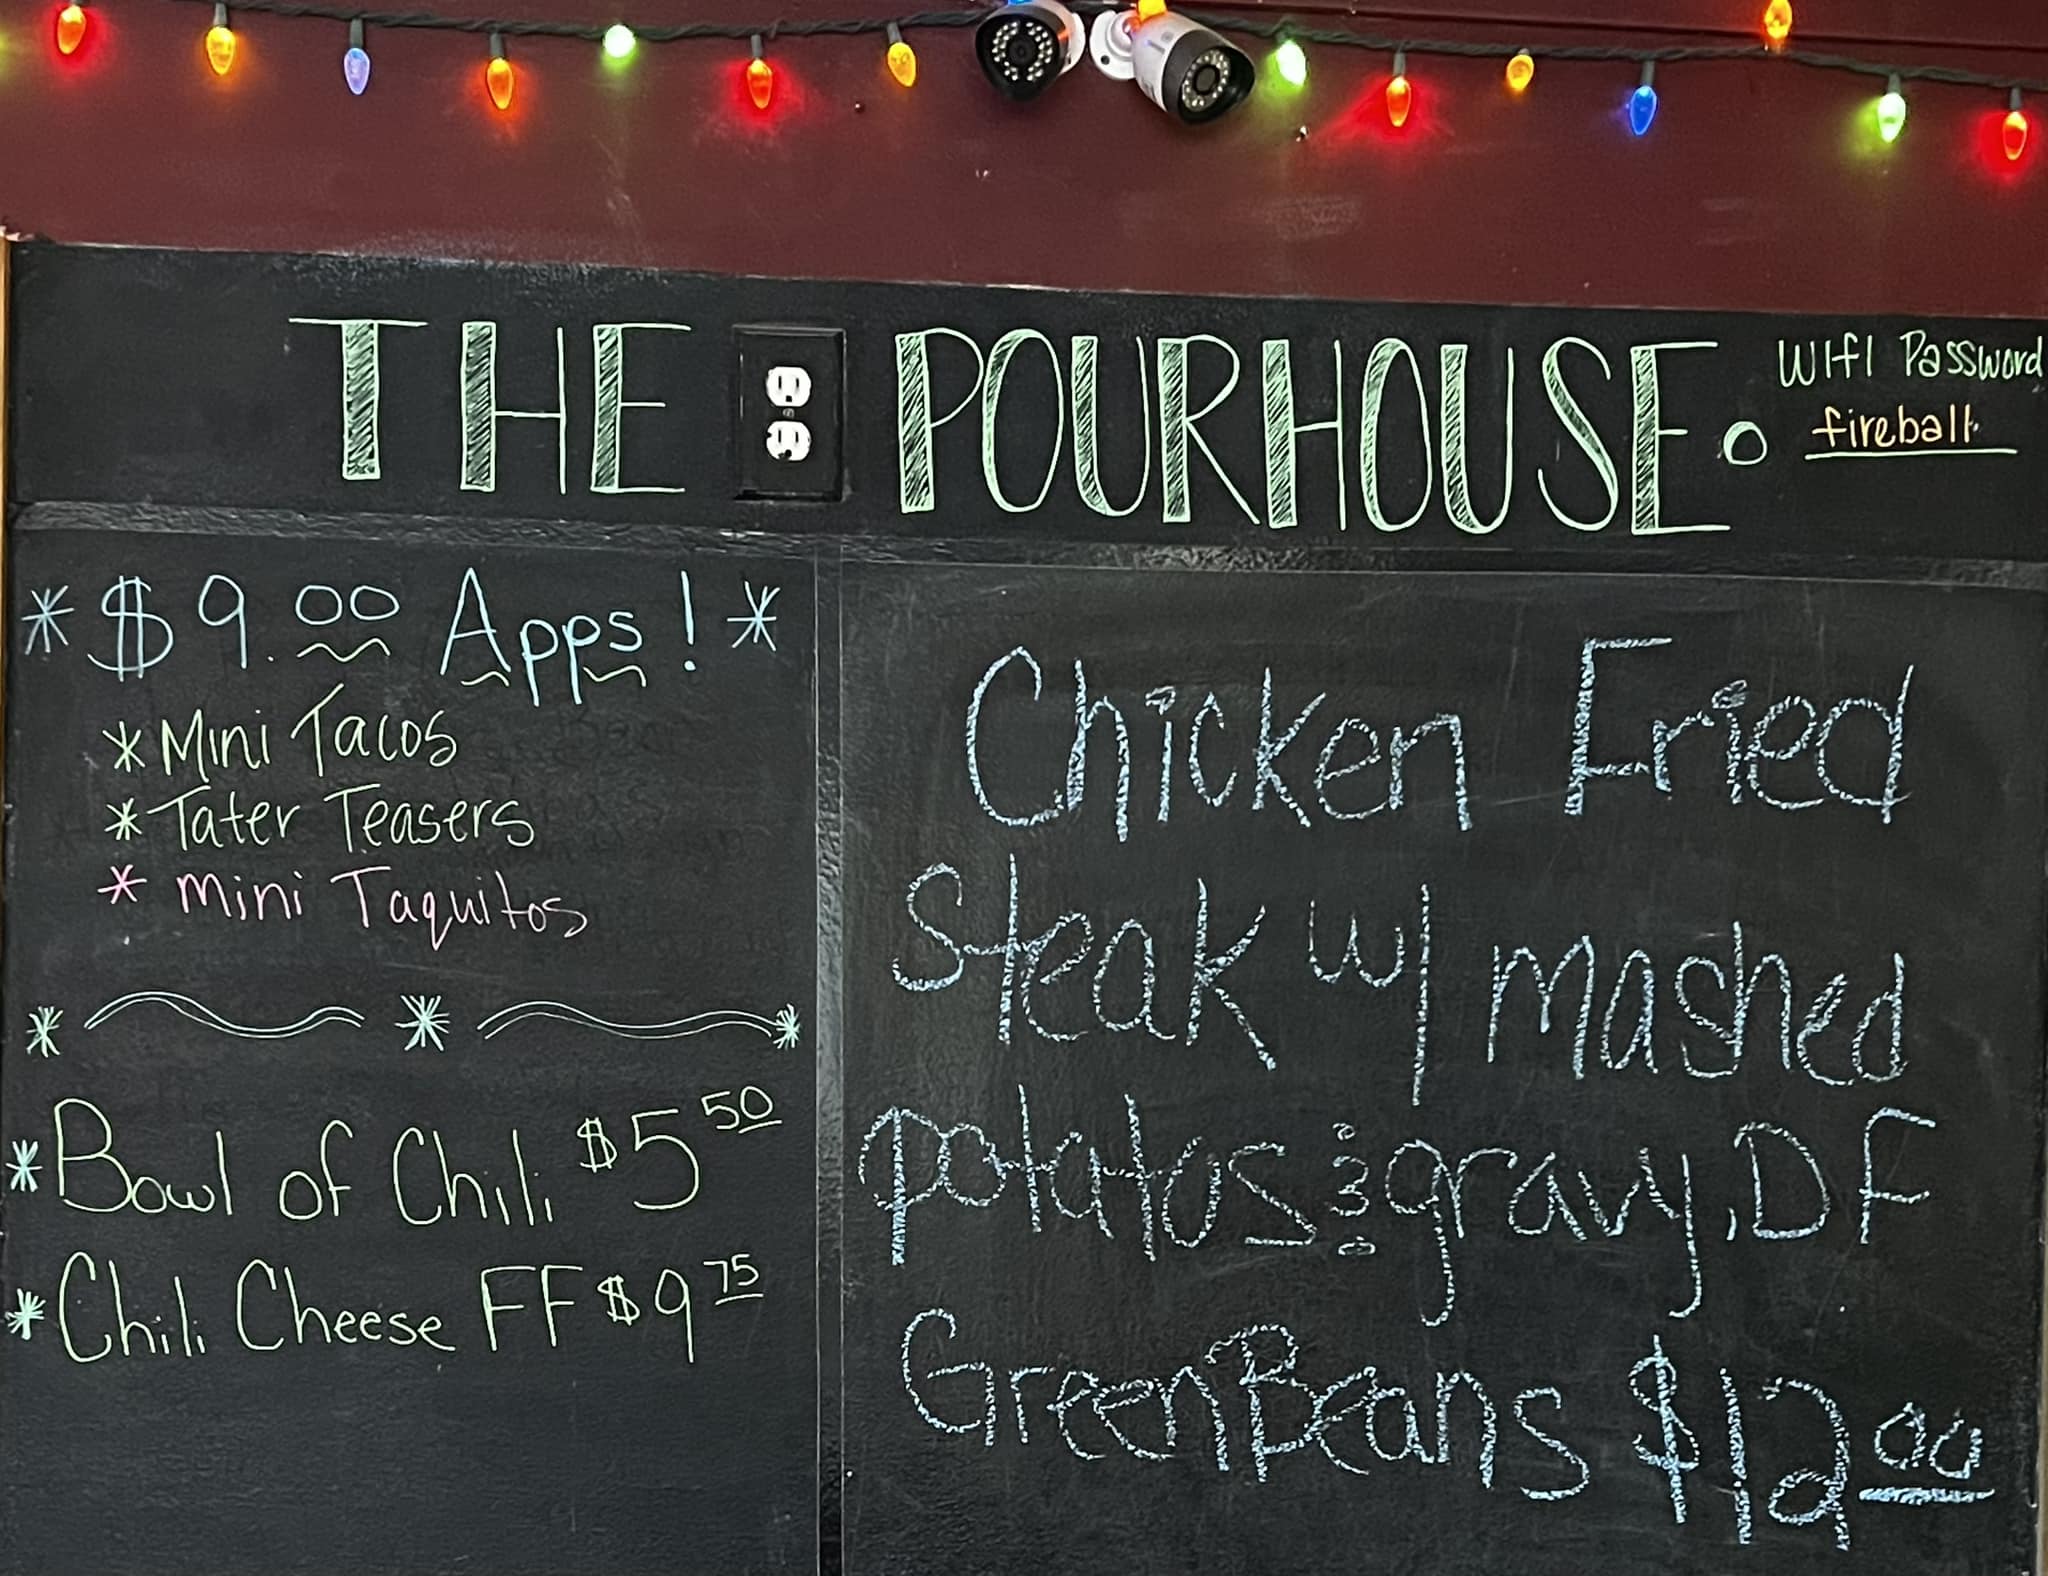 THE POURHOUSE.
WIFI Password
fireball.
* $9.00 Apps! *
* Mini Tacos
* Tater Teasers
* Mini Taquitos
* Bowl of Chili $5 50
* Chili Cheese FF $9 75
Chicken Fried
Steak w/ mashed
potatos & gravy, DF
Green Beans $12 00